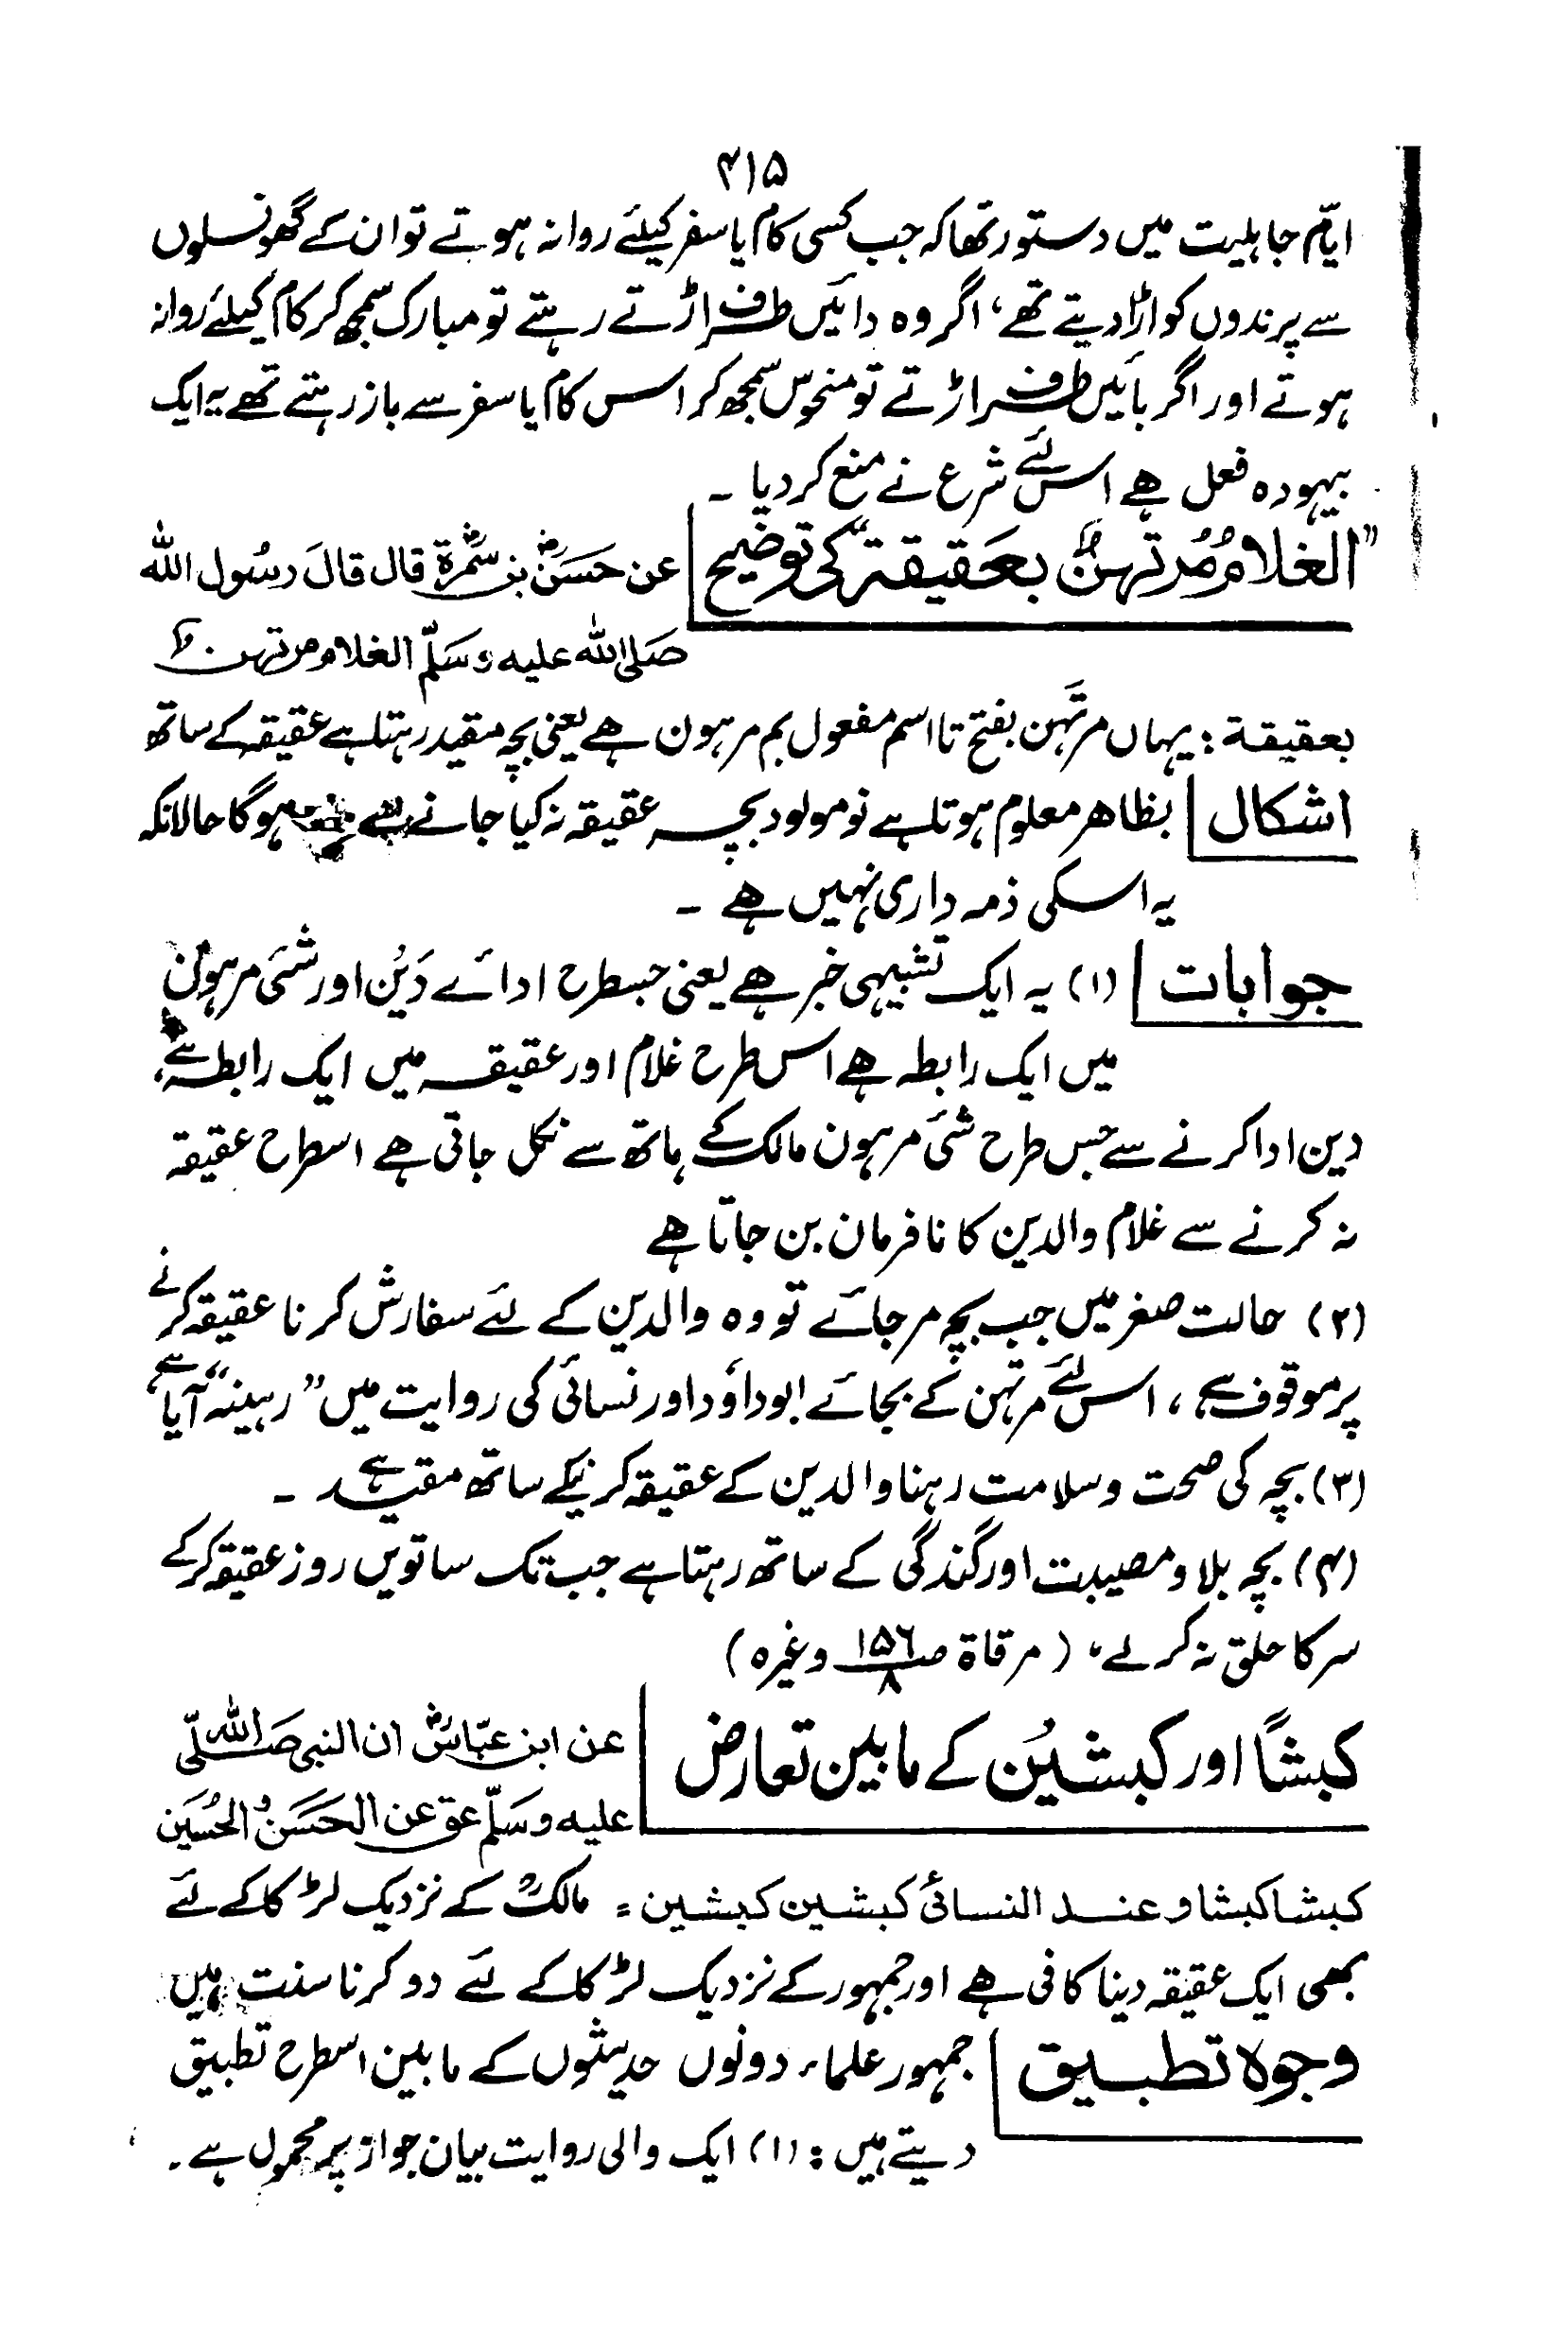 ۴۱۵
ایّام جاہلیت میں دستور تھا کہ جب کسی کام یا سفر کیلئے روانہ ہوتے تو ان کے گھونسلوں
سے پرندوں کو اڑا دیتے تھے، اگر وہ دائیں طرف اڑتے رہتے تو مبارک سمجھ کر کام کیلئے روانہ
ہوتے اور اگر بائیں طرف اڑتے تو منحوس سمجھ کر اس کام یا سفر سے باز رہتے تھے یہ ایک
بیہودہ فعل ہے اس لئے شرع نے منع کر دیا ۔
”الغلامُ مُرتہنٌ بعَقیقتہ“ کی توضیح
عن حَسَنؓ بن سَمُرۃؓ قال قالَ رسُول اللہ
صَلی اللہ علیہ وسَلّم الغلام مرتہن
بعقیقة : یہاں مرتَہن بفتح تا اسم مفعول بم مرہون ہے یعنی بچہ مقید رہتا ہے عقیقہ کے ساتھ
اشکال | بظاھر معلوم ہوتا ہے نومولود بچہ عقیقہ نہ کیا جانے سے ہوگا حالانکہ
یہ اسکی ذمہ داری نہیں ہے ۔
جوابات | (۱) یہ ایک تشبیہی خبر ہے یعنی جسطرح ادائے دَیْن اور شئی مرہون
میں ایک رابطہ ہے اس طرح غلام اور عقیقہ میں ایک رابطہ ہے،
دین ادا کرنے سے جس طرح شئی مرہون مالک کے ہاتھ سے نکل جاتی ہے اسطرح عقیقہ
نہ کرنے سے غلام والدین کا نافرمان بن جاتا ہے
(۲) حالت صغر میں جب بچہ مر جائے تو وہ والدین کے لئے سفارش کرنا عقیقہ کرنے
پر موقوف ہے، اس لئے مرتہن کے بجائے ابوداؤد اور نسائی کی روایت میں ”رہینہ“ آیا ہے،
(۳) بچہ کی صحت و سلامت رہنا والدین کے عقیقہ کرنیکے ساتھ مقید ہے ۔
(۴) بچہ بلا و مصیبت اور گندگی کے ساتھ رہتا ہے جب تک ساتویں روز عقیقہ کرکے
سر کا حلق نہ کرلے، (مرقاۃ صـ ۱۵۶/۸ وغیرہ)
کبشًا اور کبشیْن کے مابین تعارض
عن ابن عبّاسؓ ان النبی صَلّی اللہ
علیہ وسَلّم عق عن الحَسَنؓ والحُسَین
کبشا کبشا و عند النسائی کبشین کبشین = مالکؒ کے نزدیک لڑکا کے لئے
بھی ایک عقیقہ دینا کافی ہے اور جمہور کے نزدیک لڑکا کے لئے دو کرنا سنت ہیں
وجوہ تطبیق | جمہور علماء دونوں حدیثوں کے مابین اسطرح تطبیق
دیتے ہیں : (۱) ایک والی روایت بیان جواز پر محمول ہے ۔